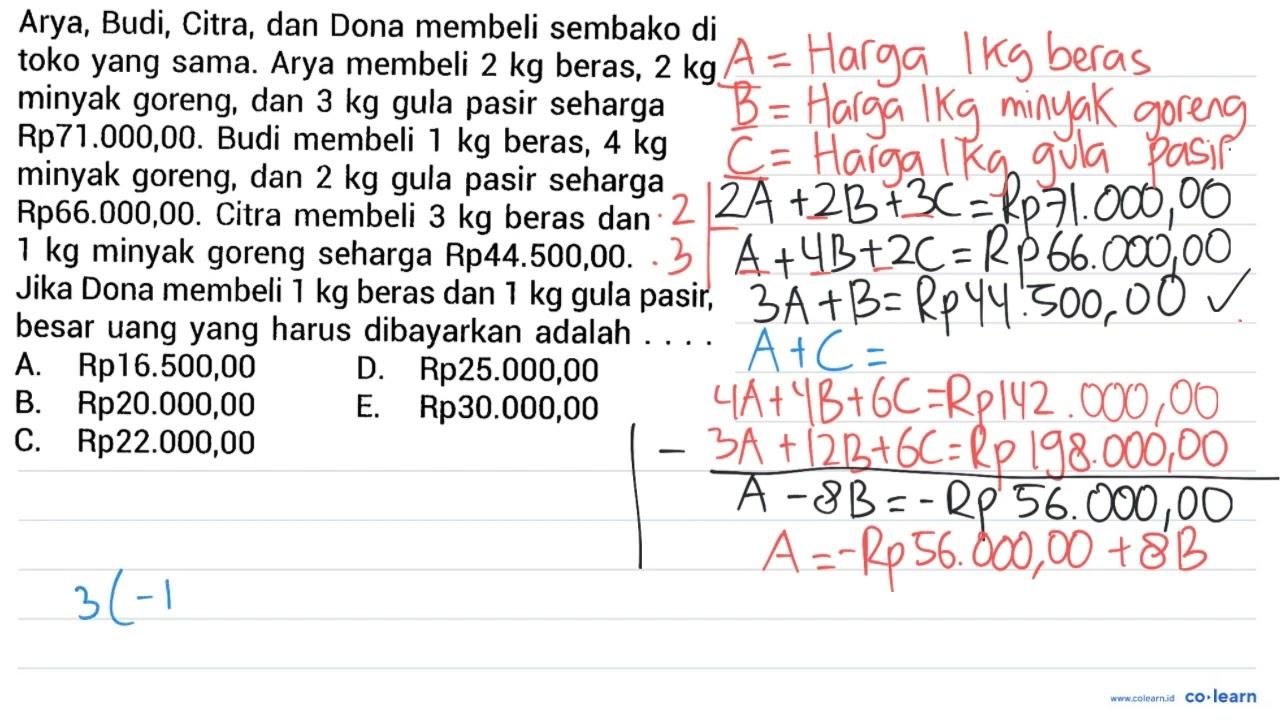 Arya, Budi, Citra, dan Dona membeli sembako di
toko yang sama. Arya membeli 2 kg beras, 2 kg
minyak goreng, dan 3 kg gula pasir seharga
Rp71.000,00. Budi membeli 1 kg beras, 4 kg
minyak goreng, dan 2 kg gula pasir seharga
Rp66.000,00. Citra membeli 3 kg beras dan
1 kg minyak goreng seharga Rp44.500,00.
Jika Dona membeli 1 kg beras dan 1 kg gula pasir,
besar uang yang harus dibayarkan adalah . . . .
A. Rp16.500,00 D. Rp25.000,00
B. Rp20.000,00 E. Rp30.000,00
C. Rp22.000,00
A = Harga 1 kg beras
B = Harga 1 kg minyak goreng
C = Harga 1 kg gula pasir
·2 | 2A + 2B + 3C = Rp71.000,00
·3 | A + 4B + 2C = Rp66.000,00
3A + B = Rp44.500,00 ✓
A + C =
4A + 4B + 6C = Rp142.000,00
- 3A + 12B + 6C = Rp198.000,00
A - 8B = -Rp56.000,00
A = -Rp56.000,00 + 8B
3(-1
www.colearn.id co·learn